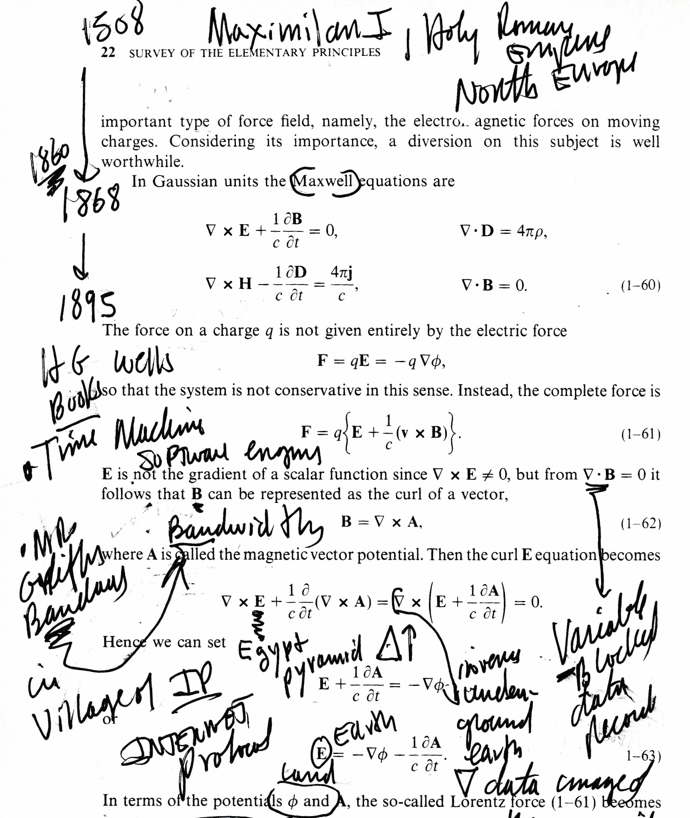 1508 Maximilan I , Holy Roman
22 SURVEY OF THE ELEMENTARY PRINCIPLES
North Europe
important type of force field, namely, the electro.. agnetic forces on moving
charges. Considering its importance, a diversion on this subject is well
worthwhile.
1860
In Gaussian units the Maxwell equations are
1868
∇ × E + 1/c ∂B/∂t = 0, ∇ · D = 4πρ,
∇ × H − 1/c ∂D/∂t = 4πj/c, ∇ · B = 0. (1–60)
1895
The force on a charge q is not given entirely by the electric force
H G Wells
F = qE = −q ∇ϕ,
Books
so that the system is not conservative in this sense. Instead, the complete force is
• Time Machine
F = q{E + 1/c (v × B)}. (1–61)
Software engms
E is not the gradient of a scalar function since ∇ × E ≠ 0, but from ∇ · B = 0 it
follows that B can be represented as the curl of a vector,
Bandwidthy
B = ∇ × A, (1–62)
• MR
where A is called the magnetic vector potential. Then the curl E equation becomes
Griffiths
Bandaus
∇ × E + 1/c ∂/∂t (∇ × A) = ∇ × (E + 1/c ∂A/∂t) = 0.
Hence we can set
Egypt
pyramid Δ↑
E + 1/c ∂A/∂t = −∇ϕ
in
Village of IP
or
INTERNET
Protocol
inverse
under-
ground
earth
Variable
Blocked
data
records
Earth
E = −∇ϕ − 1/c ∂A/∂t. 1–63)
Land
∇ data cmaged
In terms of the potentials ϕ and A, the so-called Lorentz force (1–61) becomes